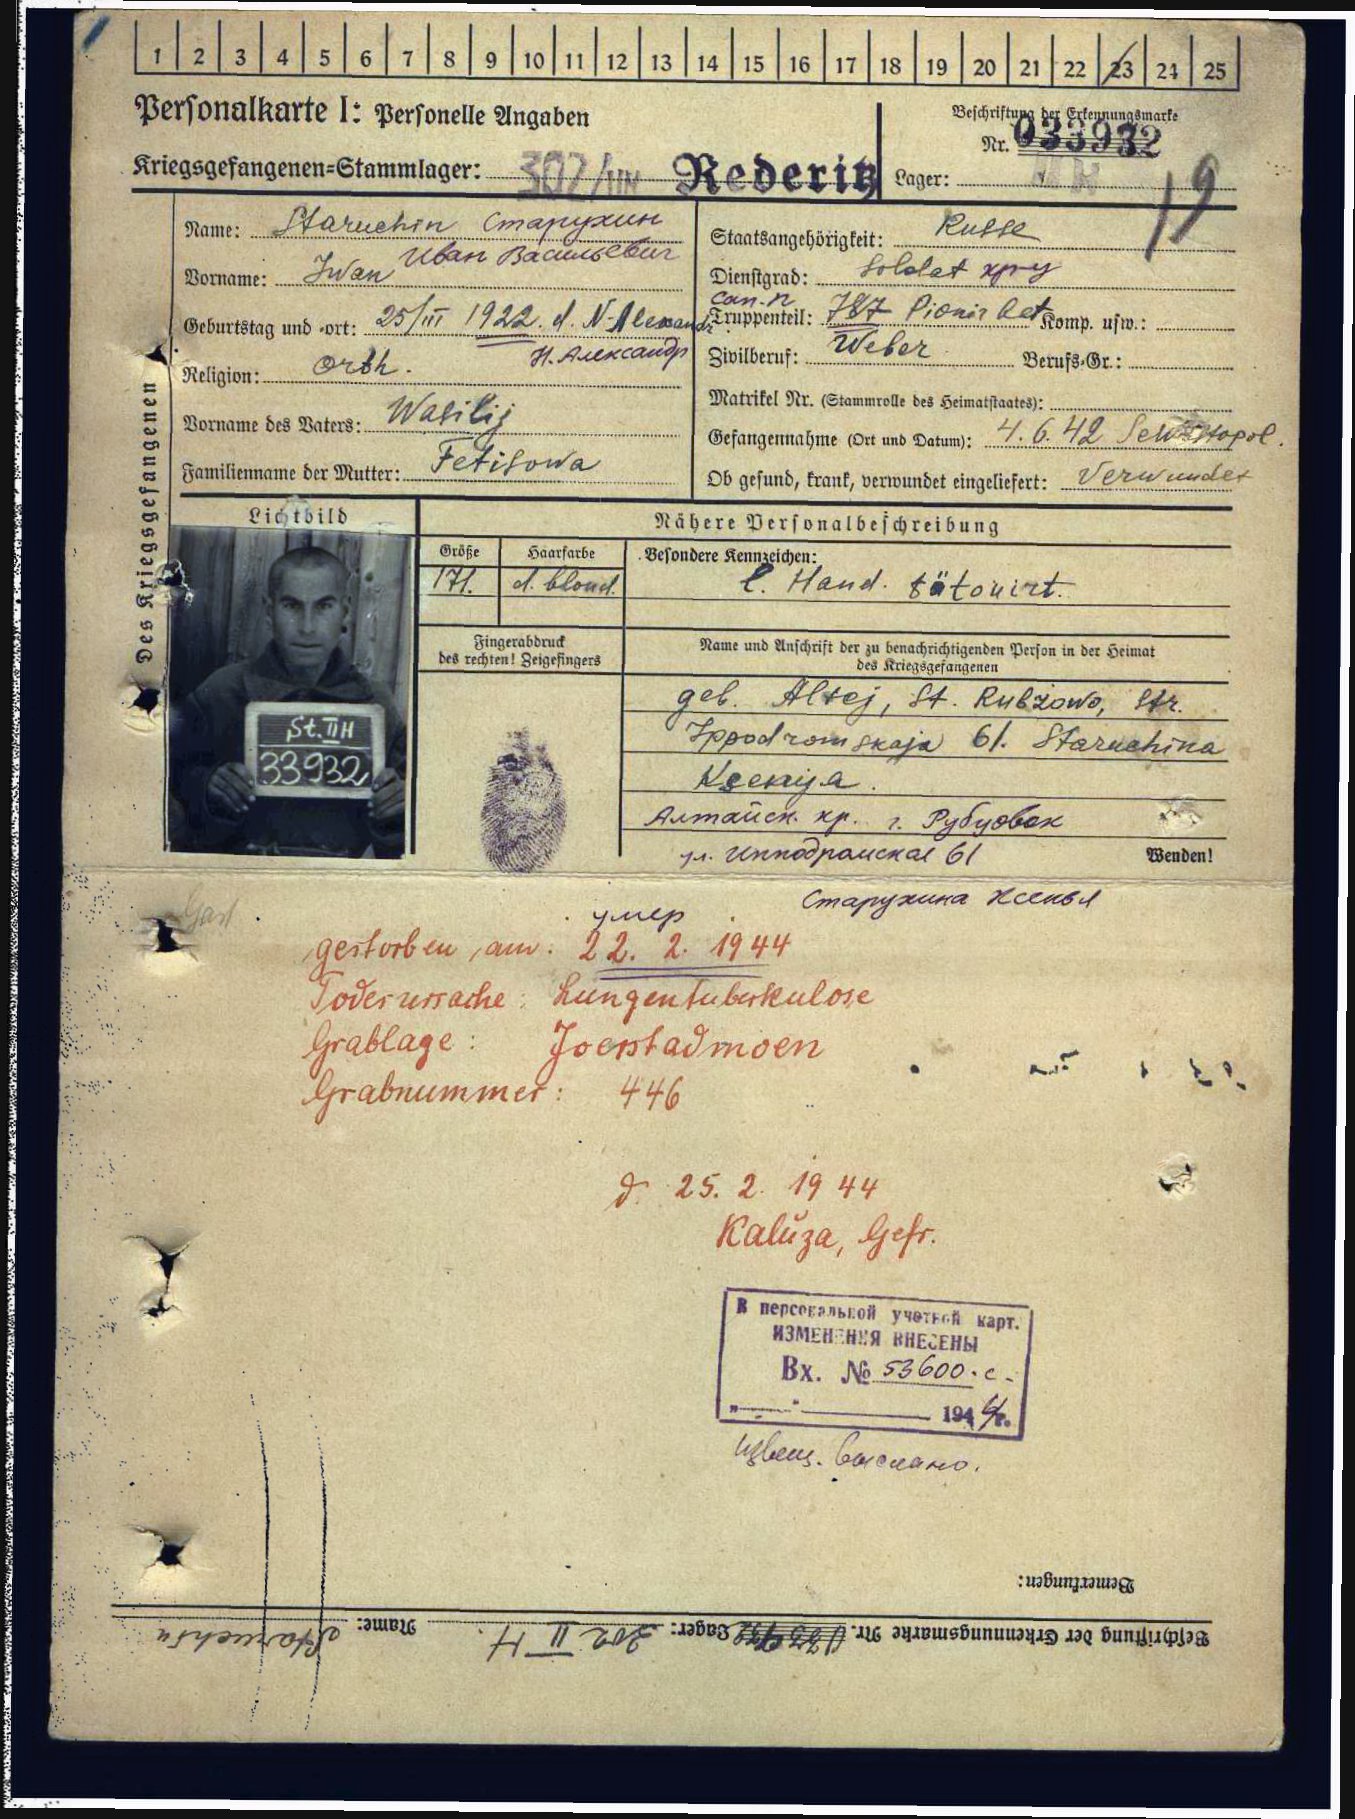 1 2 3 4 5 6 7 8 9 10 11 12 13 14 15 16 17 18 19 20 21 22 23 24 25
Personalkarte I: Personelle Angaben
Beschriftung der Erkennungsmarke
Nr. 033932
Kriegsgefangenen=Stammlager: 302/IIH Rederitz
Lager:
19
Des Kriegsgefangenen
Name: Staruchin Старухин
Иван Васильевич
Vorname: Iwan
Geburtstag und -ort: 25/III 1922. d. N-Alexandr
Н. Александр
Religion: Orth.
Vorname des Vaters: Wasilij
Familienname der Mutter: Fetisowa
Staatsangehörigkeit: Russe
Dienstgrad: Soldat кр-ц
сап. п
Truppenteil: 787 Pionir bat Komp. usw.:
Zivilberuf: Weber Berufs-Gr.:
Matrikel Nr. (Stammrolle des Heimatstaates):
Gefangennahme (Ort und Datum): 4. 6. 42 Sewastopol.
Ob gesund, krank, verwundet eingeliefert: Verwundet
Lichtbild
St. II H
33932
Nähere Personalbeschreibung
Größe Haarfarbe Besondere Kennzeichen:
171. d. blond. l. Hand. tätouirt.
Fingerabdruck
des rechten! Zeigefingers
Name und Anschrift der zu benachrichtigenden Person in der Heimat
des Kriegsgefangenen
geb. Altej, St. Rubzowo, Str.
Ippodromskaja 61. Staruchina
Ksenija.
Алтайск. кр. г. Рубцовск
ул. Ипподромская 61
Wenden!
Старухина Ксенья
умер
gestorben am: 22. 2. 1944
Todesursache: Lungentuberkulose
Grablage: Joerstadmoen
Grabnummer: 446
d. 25. 2. 1944
Kaluza, Gefr.
В персональной учетной карт.
ИЗМЕНЕНИЯ ВНЕСЕНЫ
Вх. № 53600.с-
194 г.
Извещ. выслано.
Bemerkungen:
Beschriftung der Erkennungsmarke Nr. 033932 Lager: 302 II H. Name: Staruchin